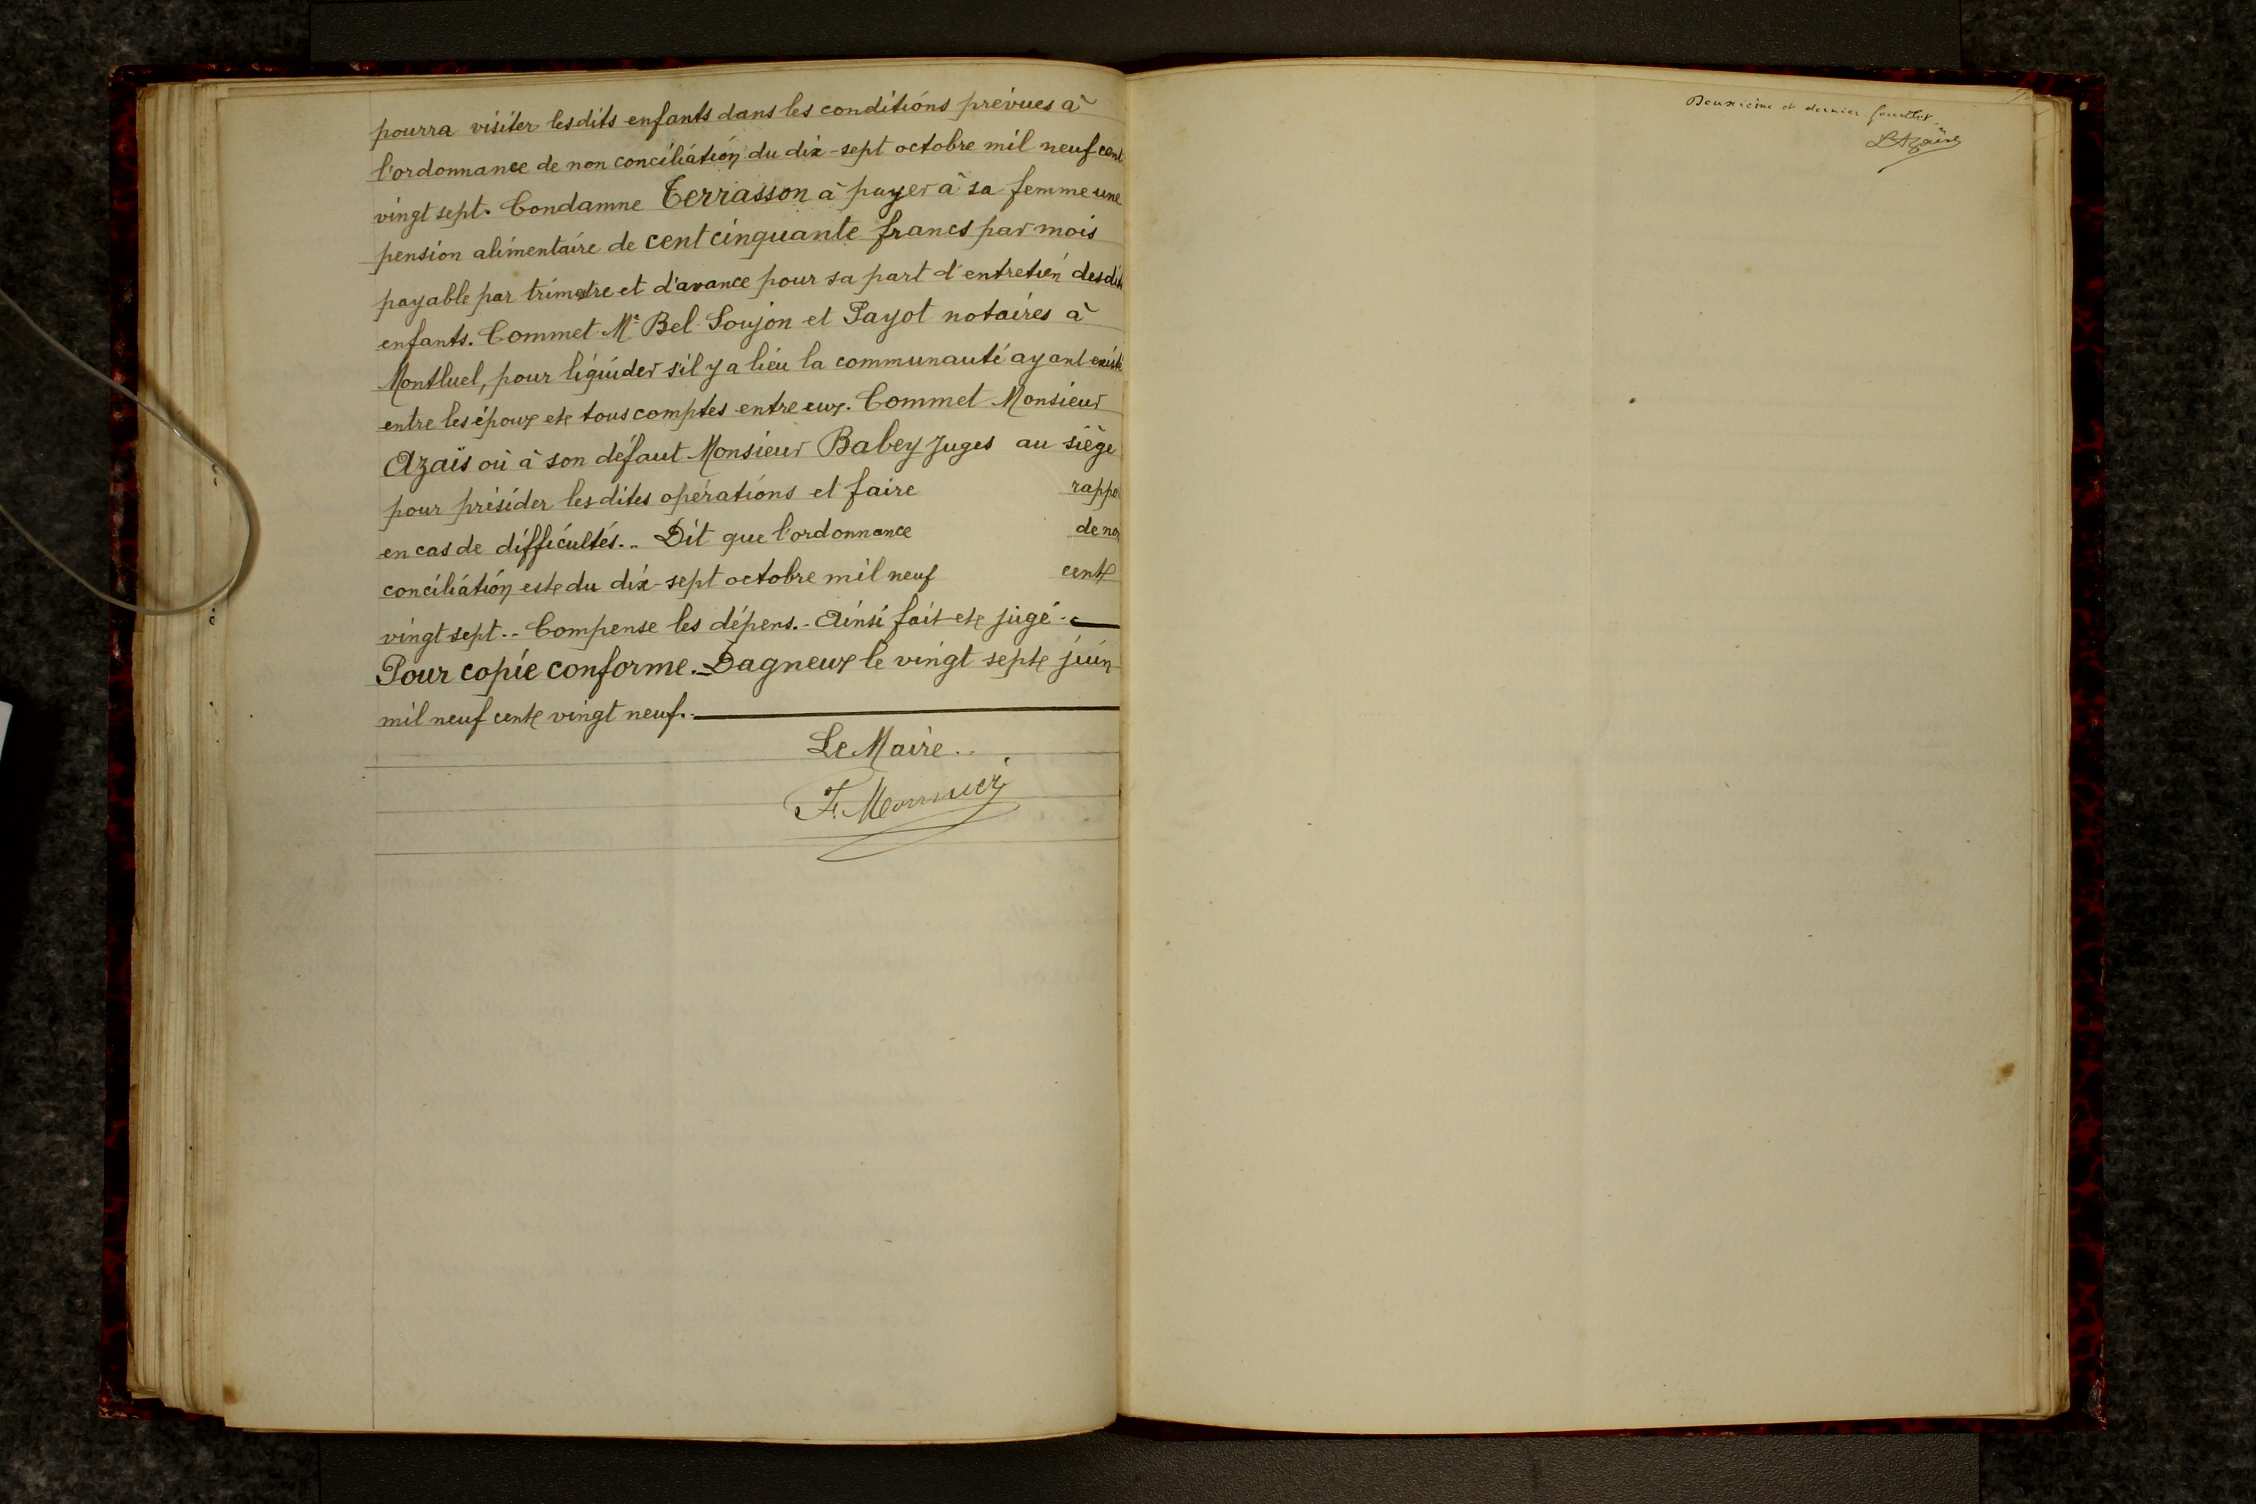 pourra visiter lesdits enfants dans les conditions prévues à
l'ordonnance de non conciliation du dix-sept octobre mil neuf cent
vingt sept. Condamne Terrasson à payer à sa femme une
pension alimentaire de cent cinquante francs par mois
payable par trimestre et d'avance pour sa part d'entretien desdits
enfants. Commet Me Bel Soujon et Payot notaires à
Montluel, pour liquider s'il y a lieu la communauté ayant existé
entre les époux et tous comptes entre eux. Commet Monsieur
Azaïs où à son défaut Monsieur Babey Juges au siège
pour présider lesdites opérations et faire rappo
en cas de difficultés.. Dit que l'ordonnance de non
conciliation est du dix-sept octobre mil neuf cent
vingt sept.. Compense les dépens.- Ainsi fait et jugé.-
Pour copie conforme.- Dagneux le vingt sept juin
mil neuf cent vingt neuf.-
Le Maire..
Deuxième et dernier feuillet